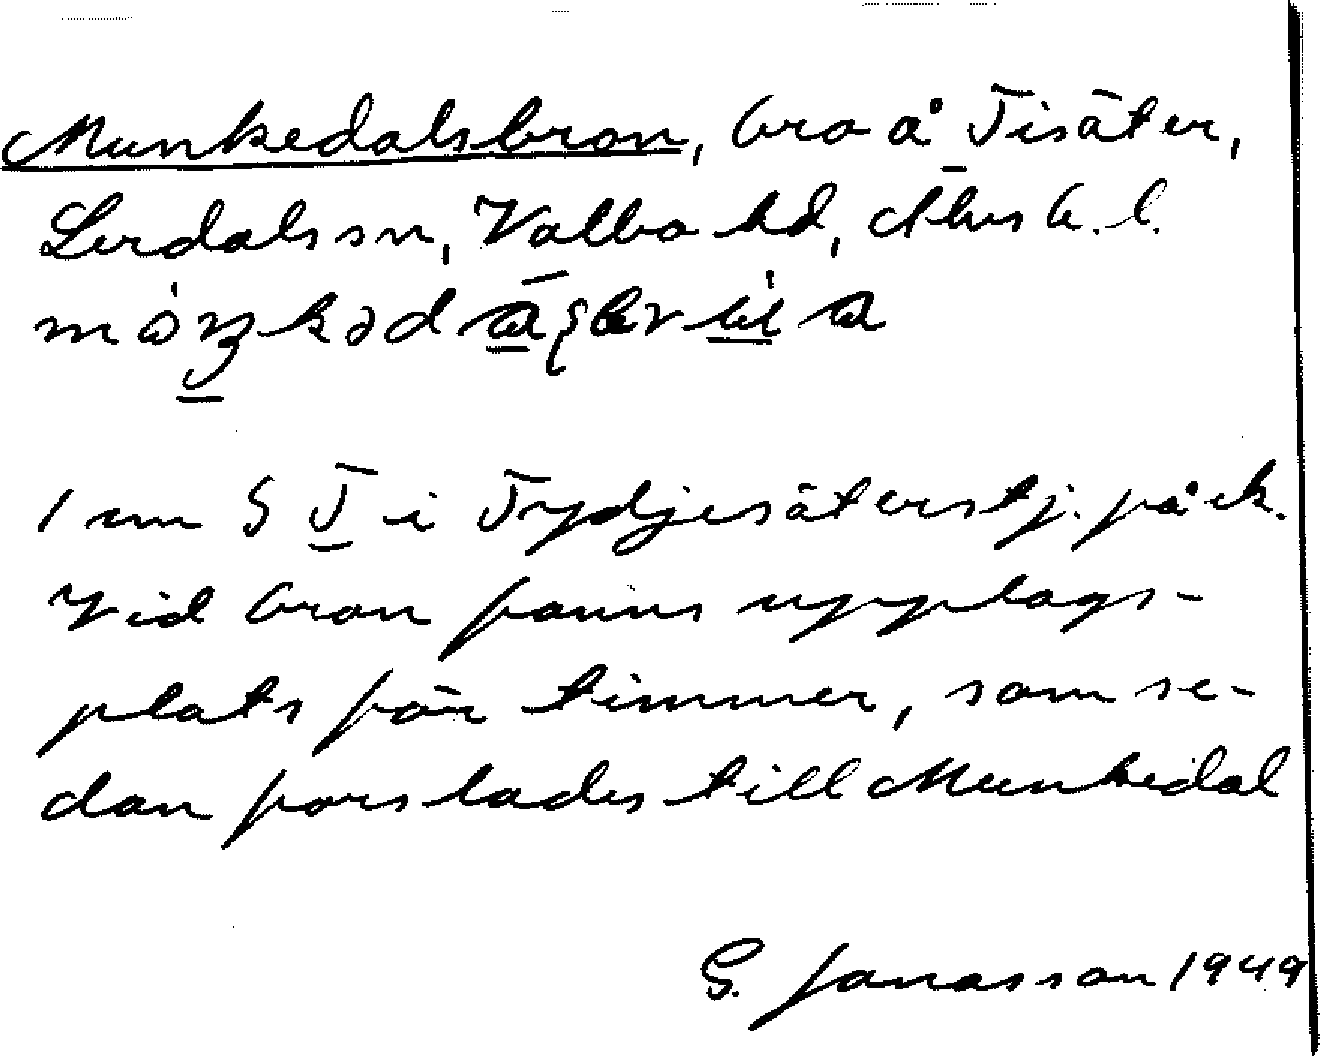 Munkedalsbron, bro å Tisäter,
Lerdals sn, Valbo hd, Älvsb. l.
1 cm S T i Tydjesäterstj. på ek.
Vid bron fanns upplags-
plats för timmer, som se-
dan forslades till Munkedal
G. Jonasson 1949